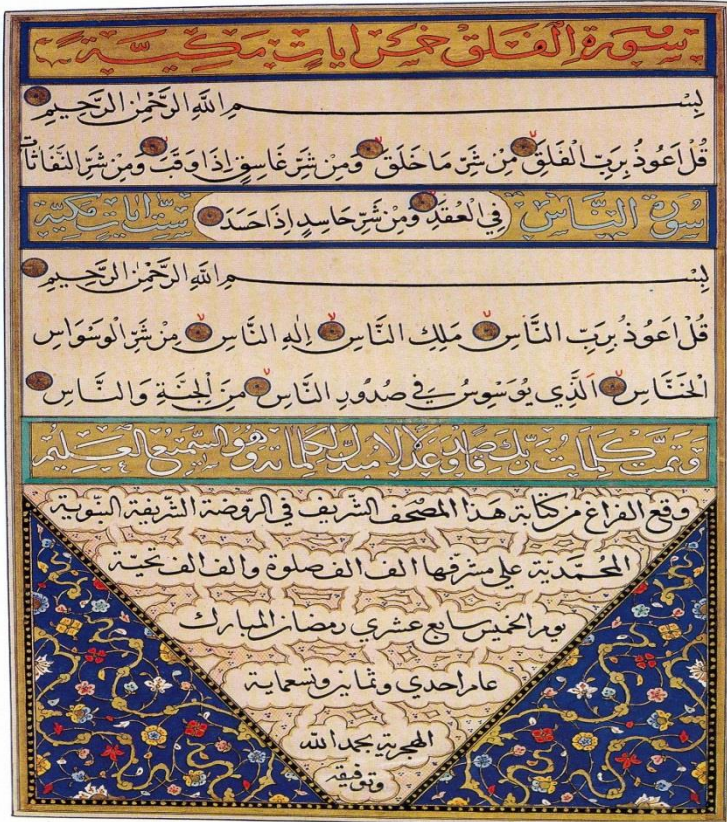 سورة الفلق خمس ايات مكية
بسم الله الرحمن الرحيم
قل اعوذ برب الفلق من شر ما خلق ومن شر غاسق اذا وقب ومن شر النفاثات
سورة الناس في العقد ومن شر حاسد اذا حسد ست ايات مكية
بسم الله الرحمن الرحيم
قل اعوذ برب الناس ملك الناس اله الناس من شر الوسواس
الخناس الذي يوسوس في صدور الناس من الجنة والناس
وتمت كلمات ربك صدقا وعدلا لا مبدل لكلماته وهو السميع العليم
وقع الفراغ من كتابة هذا المصحف الشريف في الروضة الشريفة النبوية
المحمدية على مشرفها الف الف صلوة والف الف تحية
يوم الخميس سابع عشري رمضان المبارك
عام احدي وثمانين وتسعماية
الهجرية بحمد الله
وتوفيقه